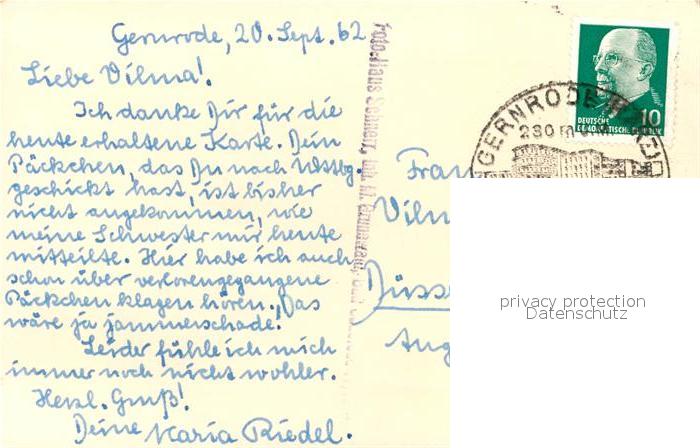 Gernrode, 20. Sept. 62
Liebe Vilma!
Ich danke Dir für die
heute erhaltene Karte. Dein
Päckchen, das Du nach Wttbg.
geschickt hast, ist bisher
nicht angekommen, wie
meine Schwester mir heute
mitteilte. Hier habe ich auch
schon über verlorengegangene
Päckchen klagen hören. Das
wäre ja jammerschade.
Leider fühle ich mich
immer noch nicht wohler.
Herzl. Gruß!
Deine Maria Riedel.
Foto-Haus
GERNRODE
230 m
10
DEUTSCHE
DEMOKRATISCHE REPUBLIK
Frau
Vilm
Düsse
Aug
privacy protection
Datenschutz